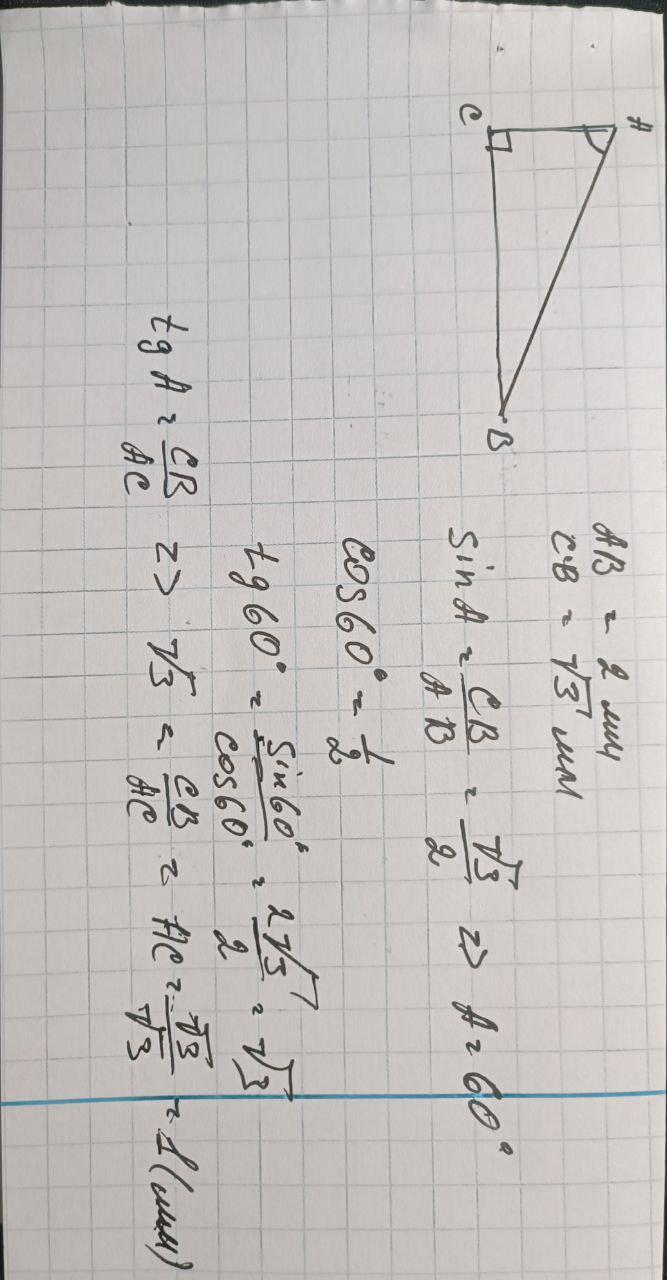 A
C
B
AB = 2 мм
CB = √3 мм
sin A = CB/AB = √3/2 => A = 60°
cos 60° = 1/2
tg 60° = sin 60°/cos 60° = 2√3/2 = √3
tg A = CB/AC => √3 = CB/AC = AC = √3/√3 = 1 (мм)